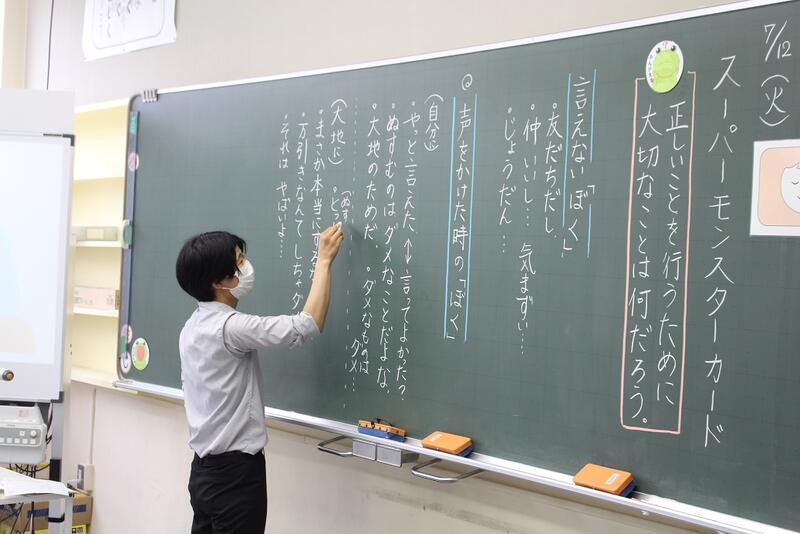 7/12(火)
スーパーモンスターカード
正しいことを行うために
大切なことは何だろう。
言えない「ぼく」
・友だちだし、
・仲いいし… 気まずい…
・じょうだん…
◎声をかけた時の「ぼく」
(自分に)
・やっと言えた ↔ 言ってよかった?
・ぬすむのはダメなことだよな、
・大地のためだ ・ダメなものは
ダメ…
(大地に)
・まさか本当に
・万引きなんてしちゃダ
・それは やばいよ…